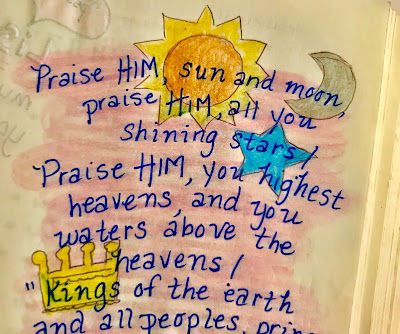 Praise HIM, sun and moon,
praise HIM, all you
shining stars!
Praise HIM, you highest
heavens, and you
waters above the
heavens!
"Kings of the earth
and all peoples, prin